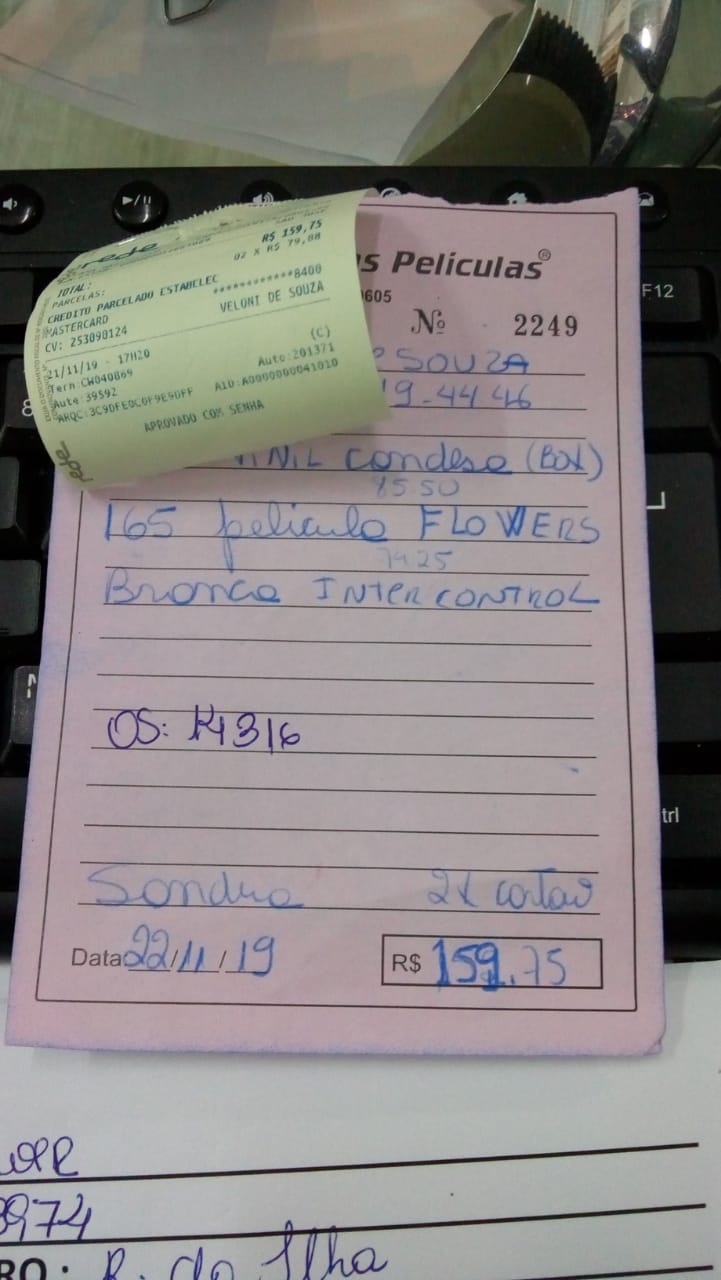 rede
R$ 159,75
TOTAL:
02 X R$ 79,88
PARCELAS:
CREDITO PARCELADO ESTABELEC
MASTERCARD ************8400
CV: 253090124 VELONI DE SOUZA
21/11/19 - 17H20 (C)
Term:CW040869 Auto:201371
Aute:39592
ARQC:3C9DFE0C0F9E9DFF AID:A0000000041010
APROVADO COM SENHA
rede
s Películas®
605
Nº 2249
SOUZA
9-44 46
VINIL condesa (BOX)
85.50
165 película FLOWERS
74 25
Branca INTERCONTROL
OS: 14316
Sandra 2x cartao
Data 22/11/19 R$ 159,75
8974
RO: R. da Ilha
F12
trl